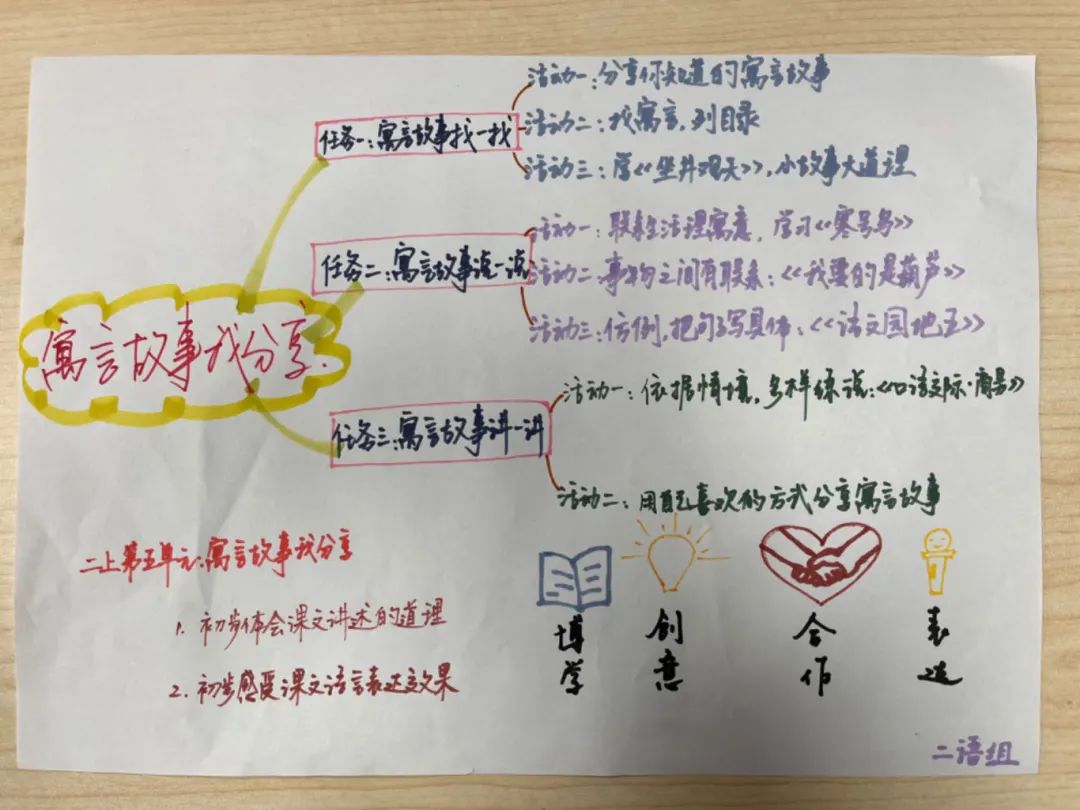 寓言故事我分享.
任务一:寓言故事找一找
活动一:分享你知道的寓言故事
活动二:找寓言,列目录
活动三:学《坐井观天》,小故事大道理
任务二:寓言故事说一说
活动一:联系生活理寓意,学习《寒号鸟》
活动二:事物之间有联系:《我要的是葫芦》
活动三:仿例,把句子写具体:《语文园地五》
任务三:寓言故事讲一讲
活动一:依据情境,多样练说:《口语交际·商量》
活动二:用自己喜欢的方式分享寓言故事
二上第五单元:寓言故事我分享
1. 初步体会课文讲述的道理
2. 初步感受课文语言表达效果
博学
创意
合作
表达
二语组